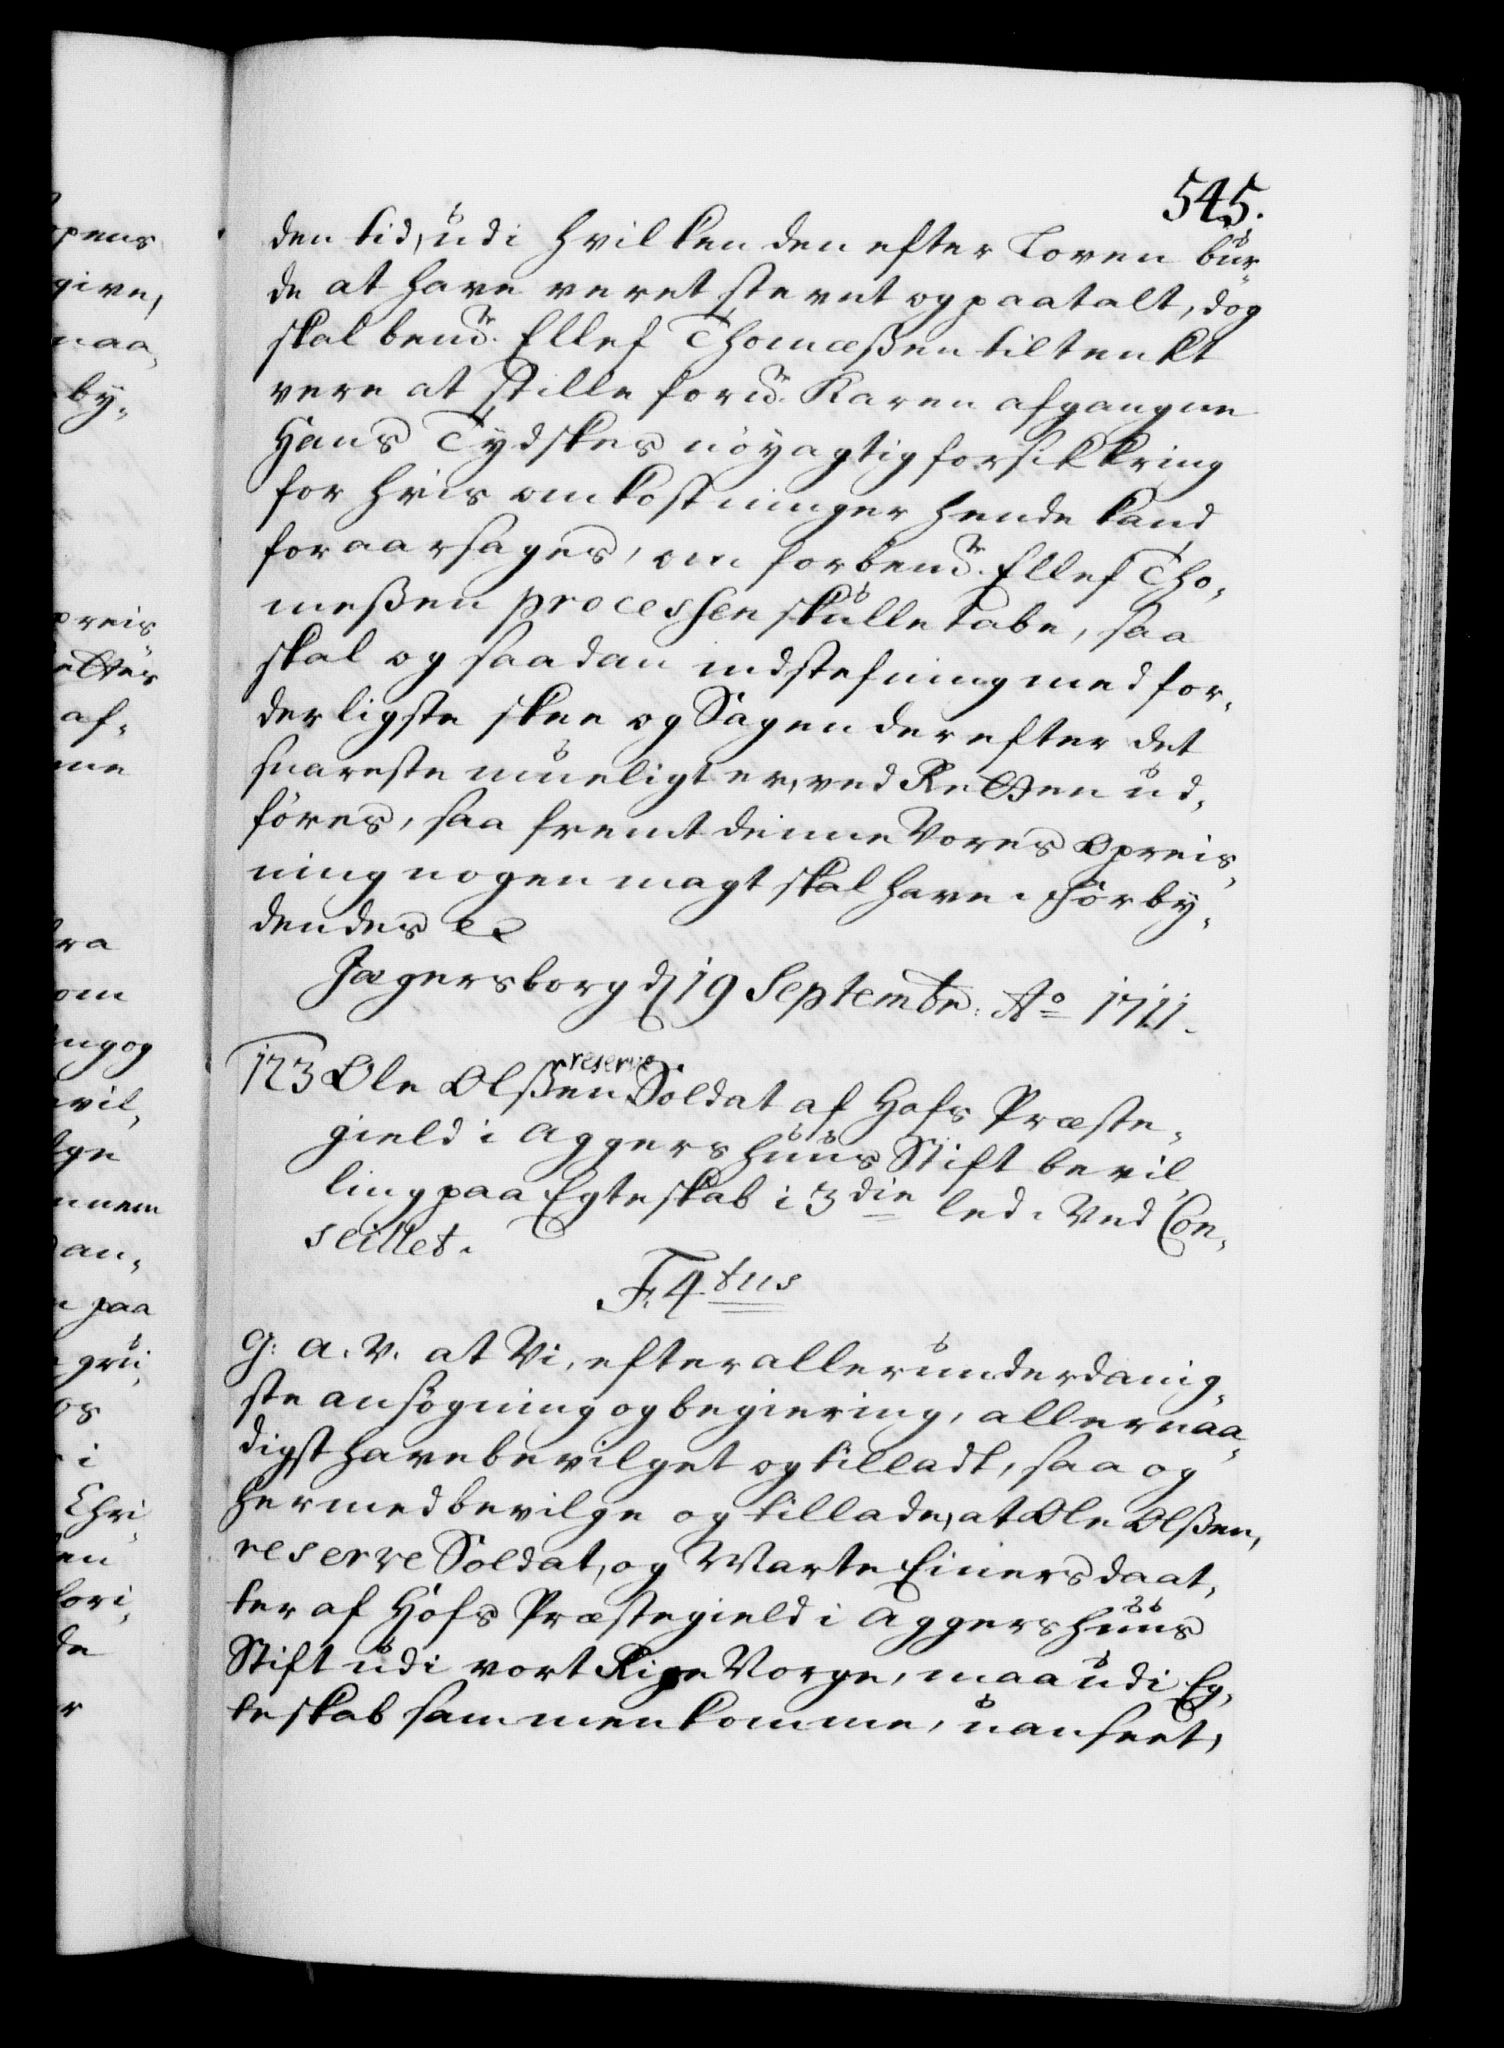 545.
den tid, udi hvilken den efter Loven bur¬
de at have veret stevnt og paatalt, dog
skal bemte. Ellef Thomæßen tiltenkt
vere at stille forne. Karen afgangne
Hans Tydskes nöyagtig forsikkring
for hvis omkostninger hende kand
foraarsages, om forbemte. Ellef Tho¬
meßen processen skulle tabe, saa
skal og saadan indstefning med for¬
derligste skee og Sagen derefter det
snareste mueligt er, ved Retten ud¬
föres, saa fremt denne Vores opreis¬
ning nogen magt skal have. Forby¬
dendes etc
Jægersborg d 19 Septembr: Ao 1711.
123 Ole Olßen reserve Soldat af Hofs Præste¬
gield i Aggershuus Stift bevil¬
ling paa Egteskab i 3die led. Ved Con¬
seillet.
F: 4tus
G: A. V. at Vi, efter allerunderdanig¬
ste ansögning og begiering, allernaa¬
digst have bevilget og tilladt, saa og
hermed bevilge og tillade, at Ole Olßen,
reserve Soldat, og Marte Einersdaat¬
ter af Hofs Præstegield i Aggershuus
Stift udi vort Rige Norge, maa udi Eg¬
teskab sammenkomme, uanseet,